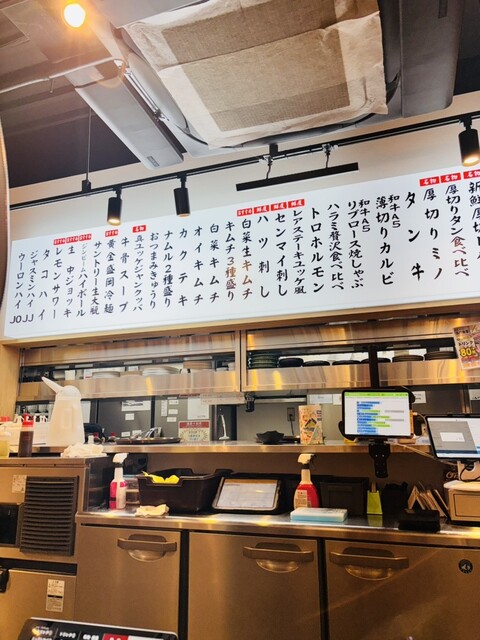 名物
名物
厚切りタン食べ比べ
名物
厚切りミノ
タン牛
和牛A5
薄切りカルビ
和牛A5
リブロース焼しゃぶ
ハラミ贅沢食べ比べ
トロホルモン
鮮度
レアステーキユッケ風
鮮度
センマイ刺し
鮮度
ハツ刺し
白菜生キムチ
キムチ3種盛り
白菜キムチ
オイキムチ
カクテキ
ナムル2種盛り
おつまみきゅうり
真ユッケジャンクッパ
名物
牛骨スープ
黄金盛岡冷麺
サントリー生大瓶
ジンビームハイボール
生中ジョッキ
レモンサワー
タコハイ
ジャスミンハイ JJ
ウーロンハイ JO